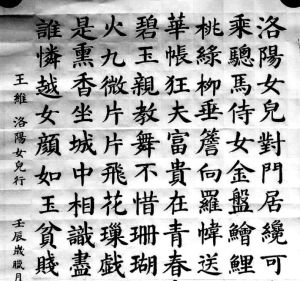 洛陽女兒對門居纔可
乘驄馬侍女金盤鱠鯉
桃綠柳垂簷向羅幃送
華帳狂夫富貴在青春
碧玉親教舞不惜珊瑚
火九微片片飛花璅戲
是熏香坐城中相識盡
誰憐越女顏如玉貧賤
王維 洛陽女兒行 壬辰歲臘月